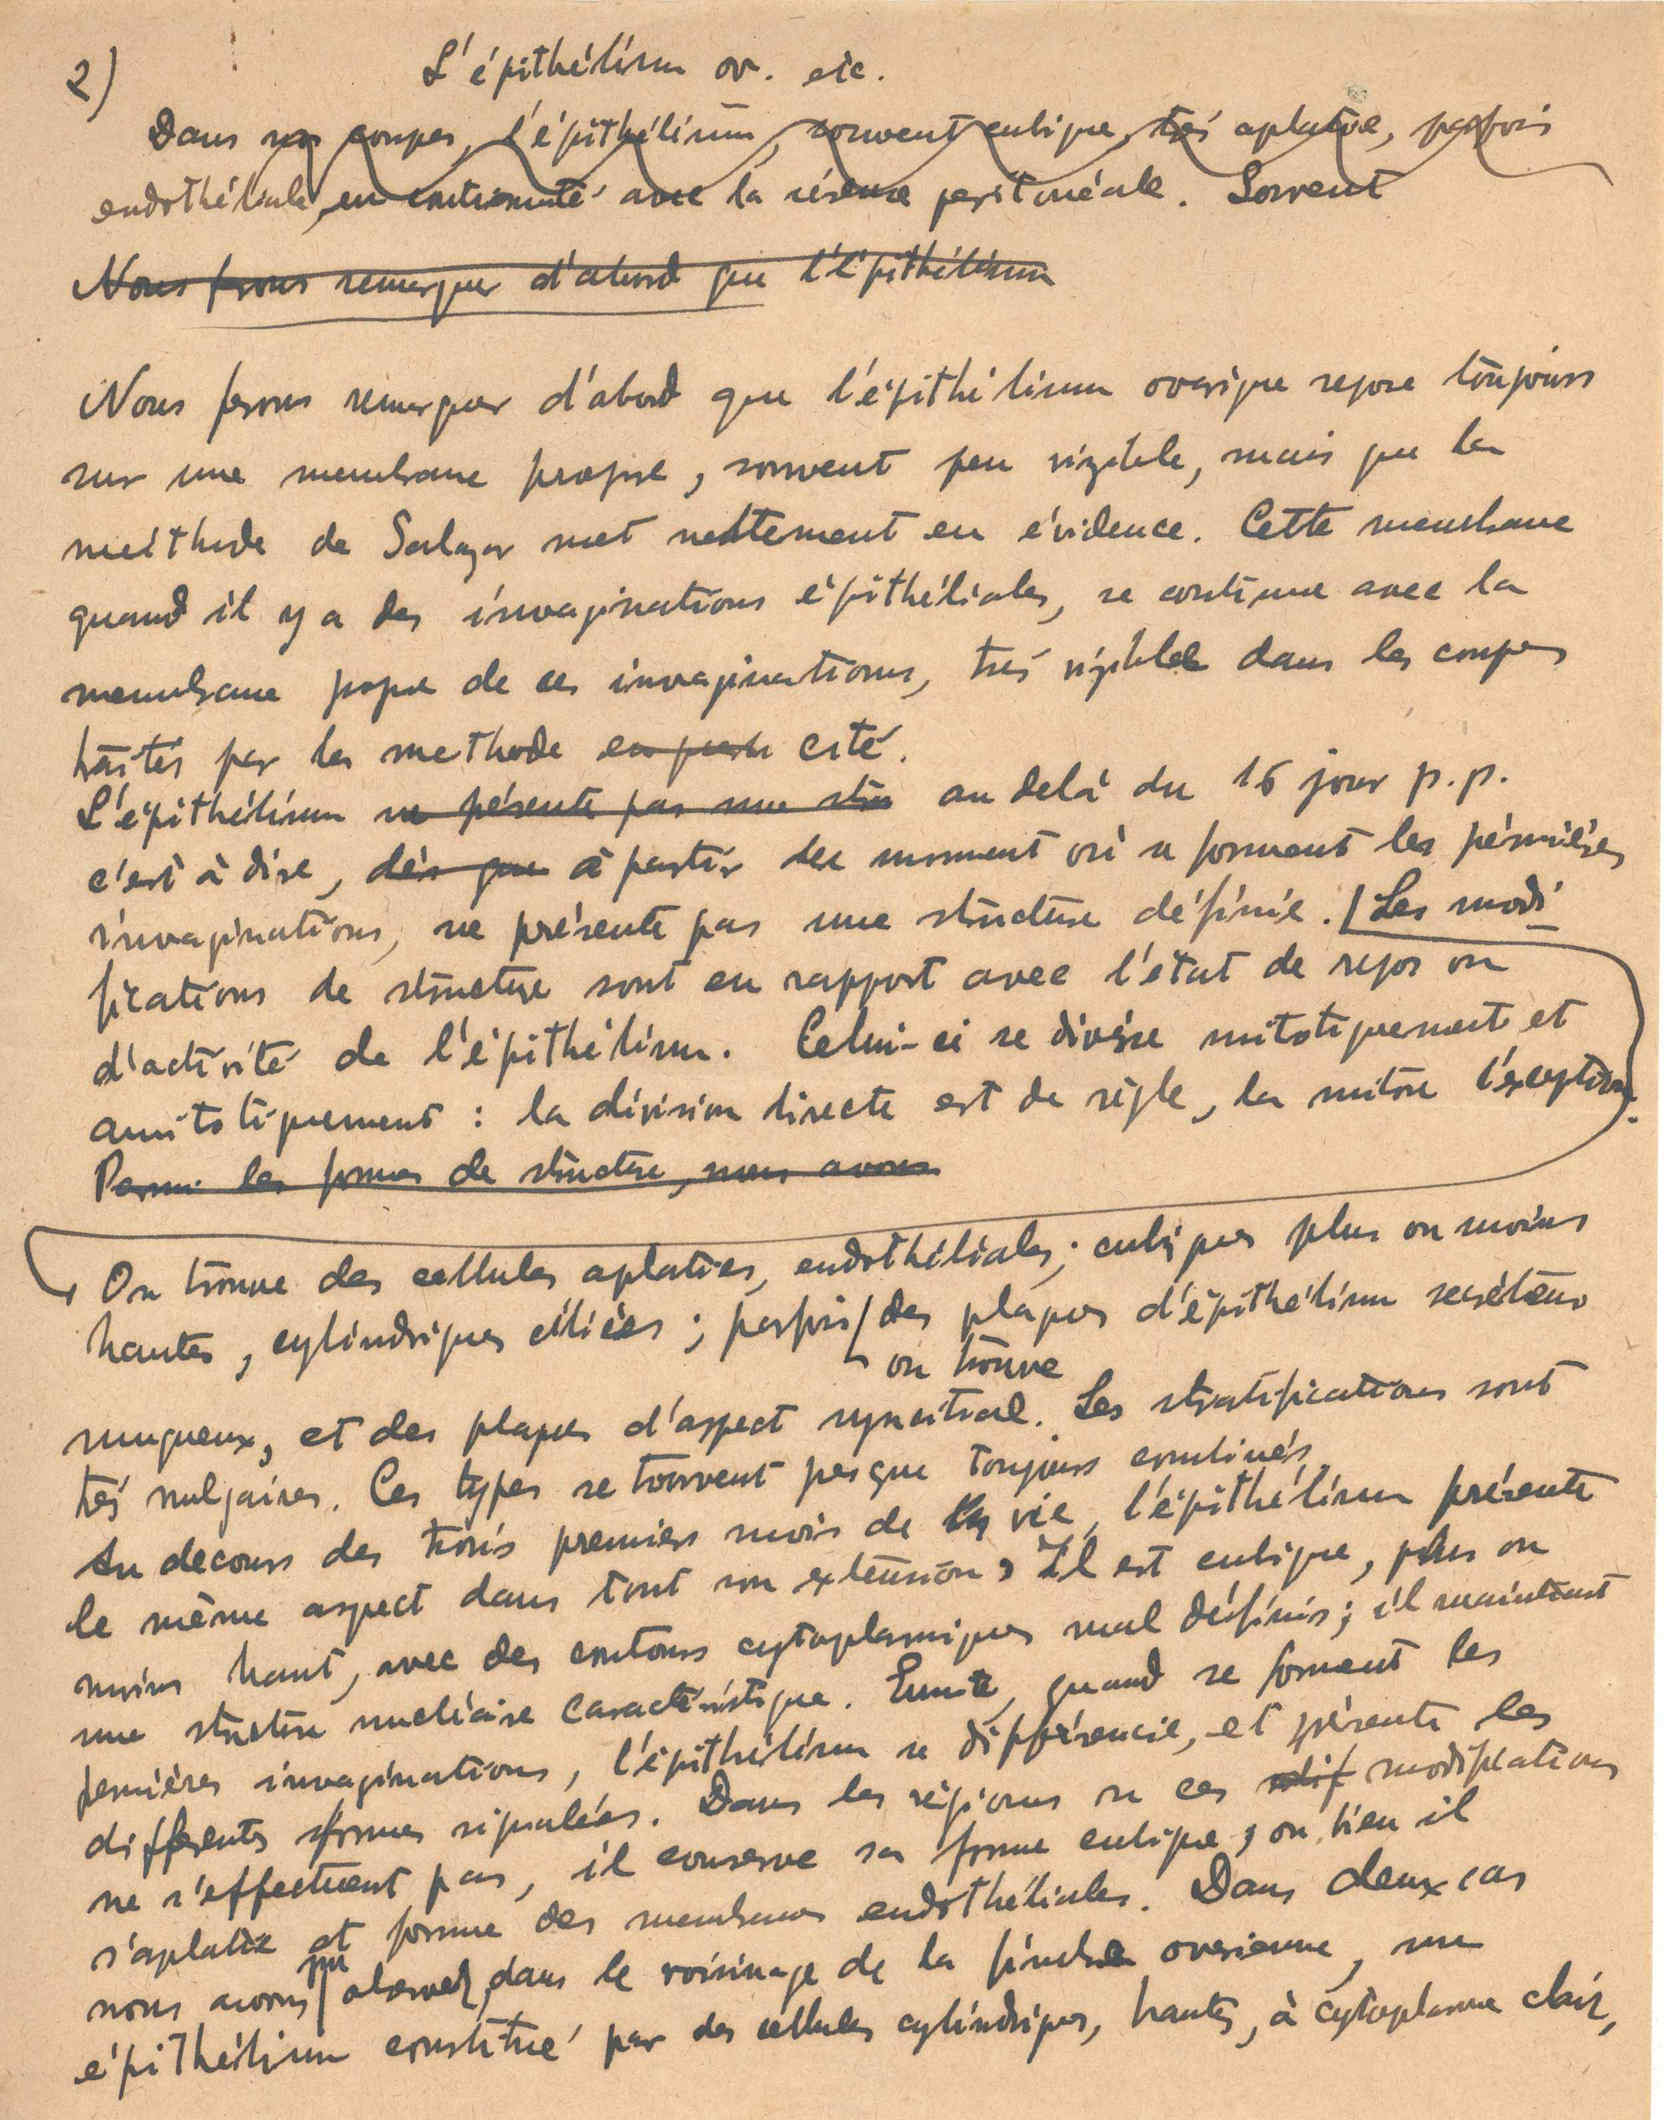 2)
L'épithélium ov. etc.
Dans nos coupes, l'épithélium, souvent cubique, très aplatie, parfois
endothéliale, en continuité avec la séreuse peritonéale. Sorvent
Nous ferons remarquer d'abord que l'épithélium
Nous ferons remarquer d'abord que l'épithélium ovarique repose toujours
sur une membrane propre, souvent peu vizible, mais que la
méthode de Salazar met nettement en évidence. Cette membrane
quand il y a des invaginations épithéliales, se continue avec la
membrane propre de ces invaginations, trés vizible dans les coupes
traités par la methode cité.
L'épithélium ne présente pas une stru au delà du 16 jour p.p.
c'est à dire, dès que à partir du moment où se forment les prémières
invaginations, ne présente pas une structure définie. Les modi-
fications de structure sont en rapport avec l'état de repos ou
d'activité de l'épithélium. Celui-ci se divise mitotiquement et
amitotiquement : la division directe est de règle, la mitose l'exception.
Parmi les formes de structure, nous avons
On trouve des cellules aplaties, endothéliales; cubiques plus ou moins
hautes, cylindriques ciliées; parfois des plaques d'épithélium secréteur
on trouve
muqueux, et des plaques d'aspect syncitial. Les stratifications sont
trés vulgaires. Ces types se trouvent presque toujours combinés.
Au decours des trois premiers mois de la vie, l'épithélium présente
le même aspect dans tout son extension, Il est cubique, plus ou
moins haut, avec des contours cytoplasmiques mal définis; il maintient
une structure nucléaire caractéristique. Ensuite, quand se forment les
premières invaginations, l'épithélium se différencie, et présente les
differentes formes signalées. Dans les régions ou ces modif modifications
ne s'effectuent pas, il conserve sa forme cubique, ou bien il
s'aplatie et forme des membranes endothéliales. Dans deux cas
nous avons pu observer, dans le voisinage de la fimbria ovarienne, un
épithélium constitué par des cellules cylindriques, hautes, à cytoplasme clair,